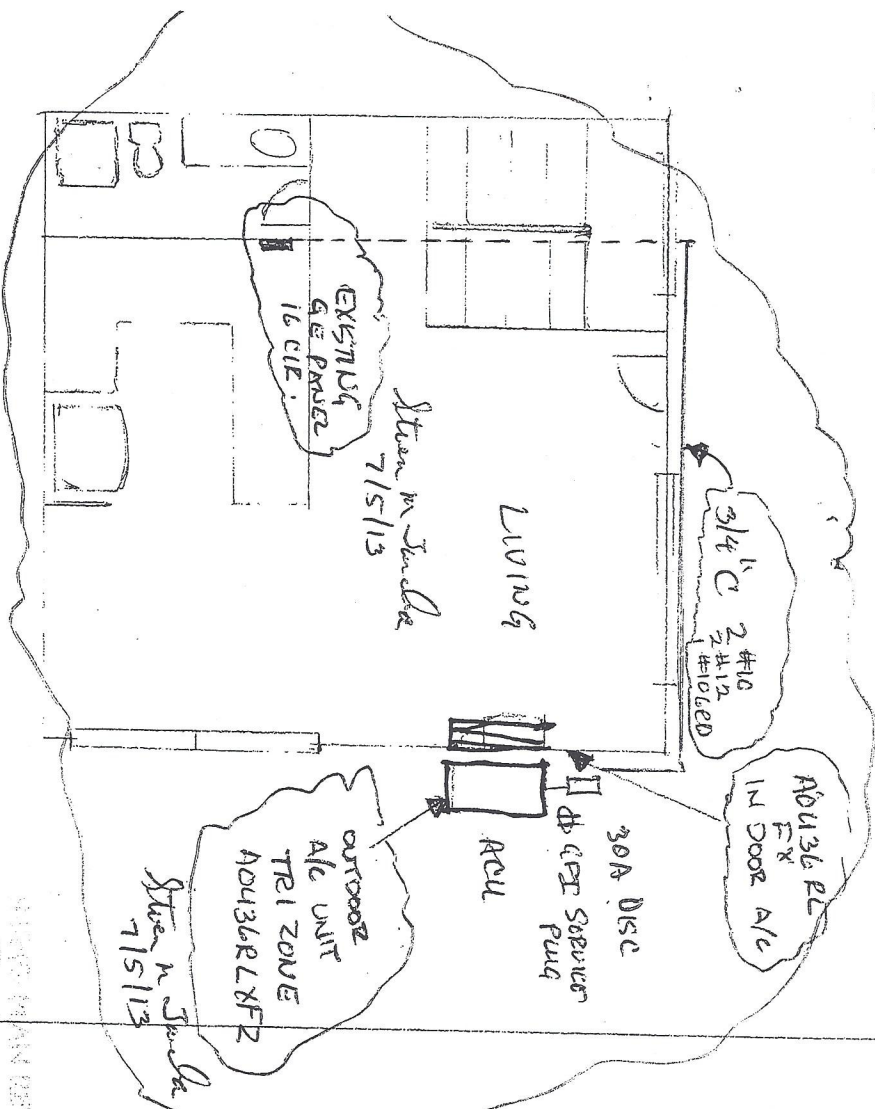 EXISTING
GE PANEL
16 CIR.
7/5/13
LIVING
3/4" C 2 #10
2 #12
1 #10 GRD
AOU36RL
FX
IN DOOR A/C
30A DISC
GFI SERVICE
PLUG
ACU
OUTDOOR
A/C UNIT
TRI ZONE
AOU36RLXFZ
7/5/13